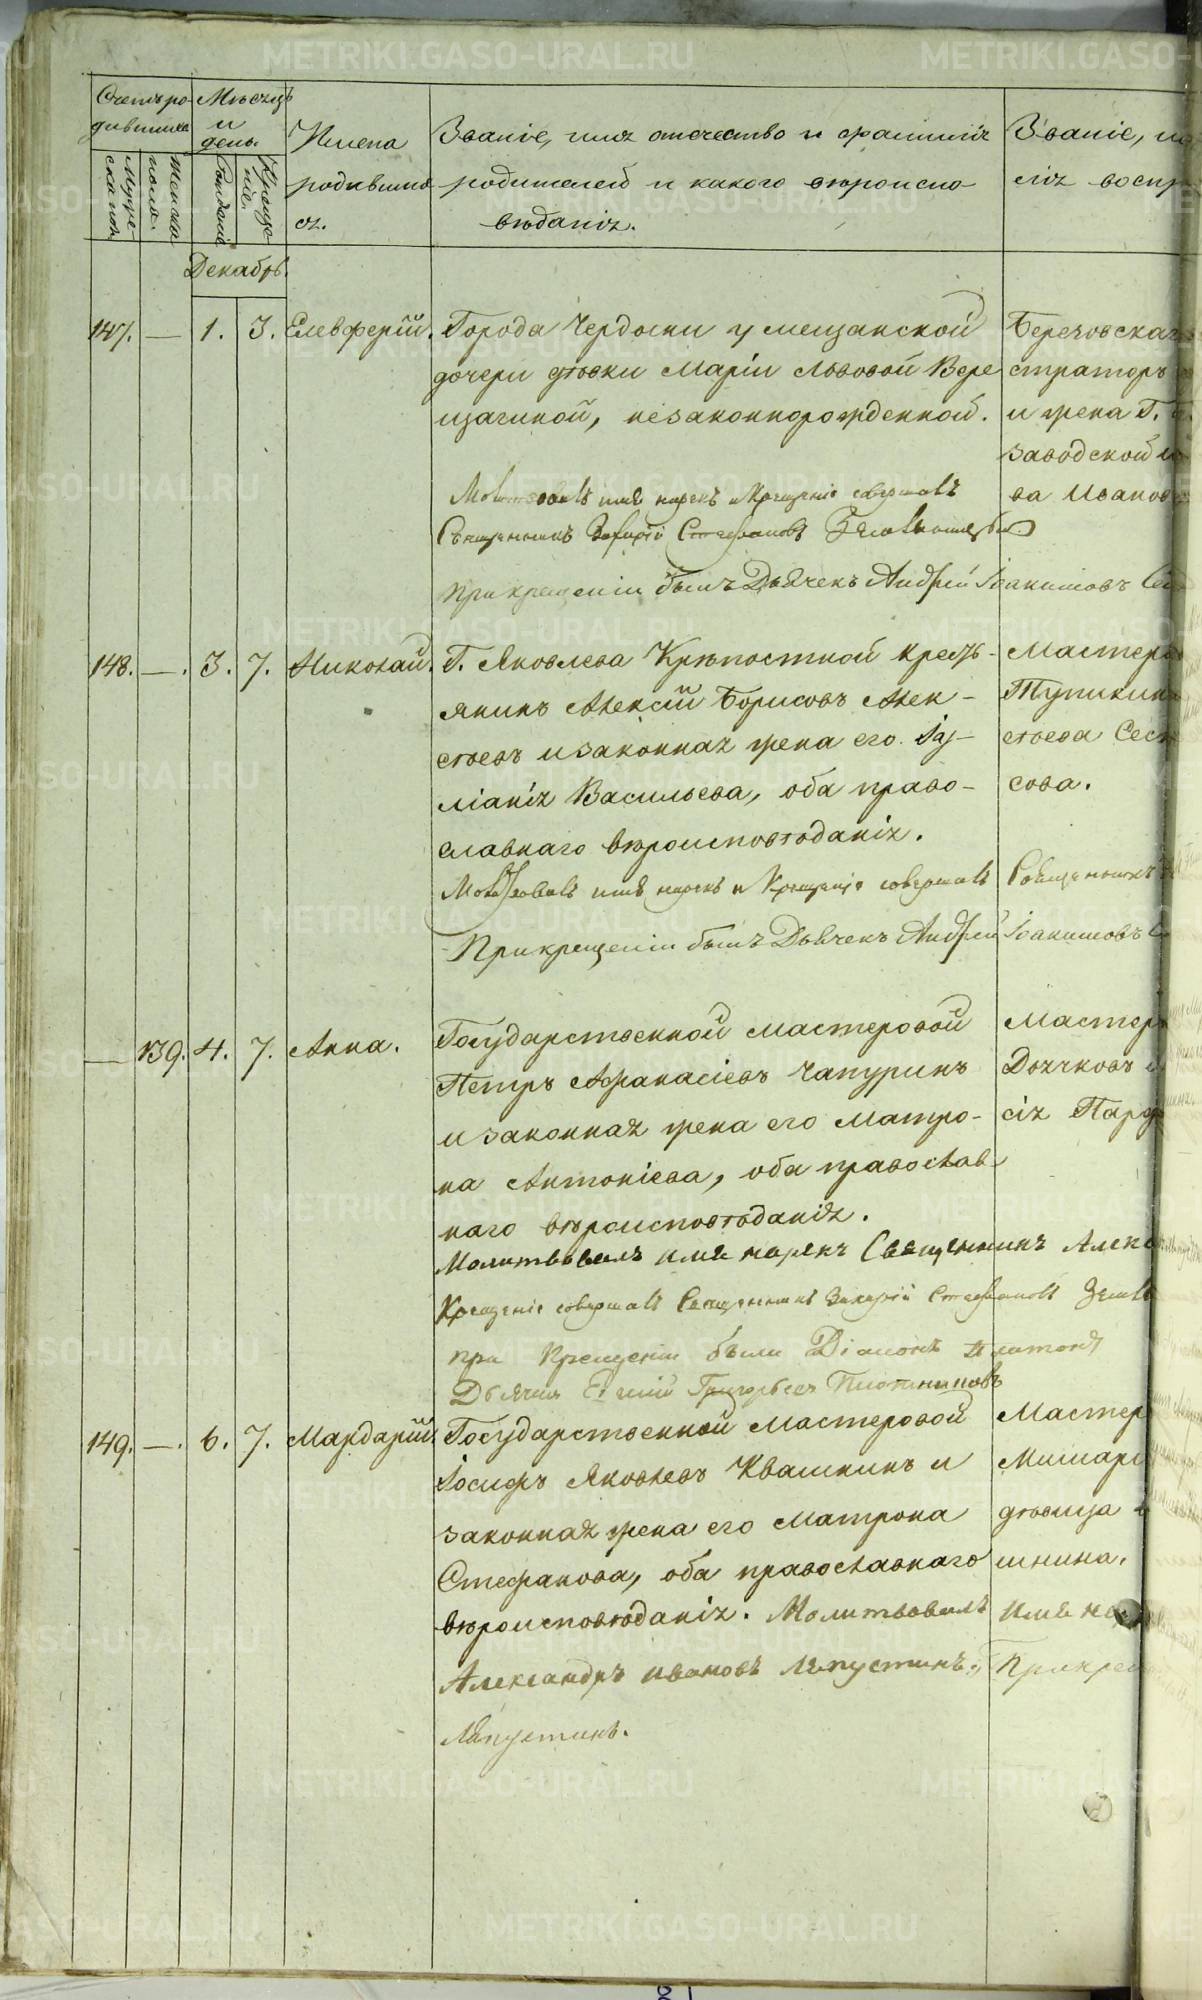 Счетъ ро-
дившихся
Муже-
ска пола.
Женска
пола.
Мѣсяцъ
и
день.
Рожденія
Креще-
нія.
Имена
родивших-
ся.
Званіе, имя отечество и фамилія
родителей и какого вѣроиспо-
вѣданія.
Званіе,
лія воспр
Декабрь.
147. — 1. 3. Елевферій.
Города Чердыни у мещанской
дочери дѣвки Маріи Львовой Вере
щагиной, незаконнорожденной.
Молитвовалъ имя нарекъ и Крещеніе совершалъ
Священникъ Захарій Стефановъ
При крещеніи былъ Дьячекъ Андрей Іоакимовъ
Березовскаго
страторъ
и жена Г.
заводской
ва Иванов
148. — 3. 7. Николай.
Г. Яковлева Крѣпостной кресть-
янинъ Алексій Борисовъ Алек-
сѣевъ и законная жена его Іу-
ліанія Васильева, оба право-
славнаго вѣроисповѣданія.
Молитвовалъ имя нарекъ и Крещеніе совершалъ Священникъ
При крещеніи былъ Дьячекъ Андрей Іоакимовъ
Мастеро
Тупикин
сѣева Сес
сова.
— 139. 4. 7. Анна.
Государственной мастеровой
Петръ Афанасіевъ Чапуринъ
и законная жена его Матро-
на Антоніева, оба православ-
наго вѣроисповѣданія.
Молитвовалъ имя нарекъ Священникъ Алекс
Крещеніе совершалъ Священникъ Захарій Стефановъ
при Крещеніи были Діаконъ
Дьячекъ Григорьевъ Плотниковъ
Мастер
Дьячковъ
сія Парф
149. — 6. 7. Мардарій.
Государственной мастеровой
Іосифъ Яковлевъ Квашнинъ и
законная жена его Матрона
Стефанова, оба православнаго
вѣроисповѣданія. Молитвовалъ имя на
Александръ Ивановъ Ляпустинъ, При крещ
Ляпустинъ.
Мастер
Мишари
дѣвица
шнина.
METRIKI.GASO-URAL.RU